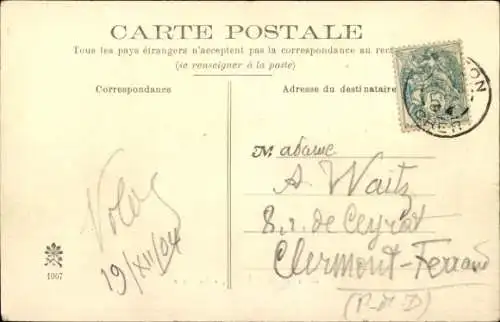 CARTE POSTALE
Tous les pays étrangers n'acceptent pas la correspondance au rec
(se renseigner à la poste)
Correspondance
Adresse du destinataire
Madame
A. Waitz
8, r. de Ceyrat
Clermont-Ferrand
(P-de-D)
19/XII/04
1067